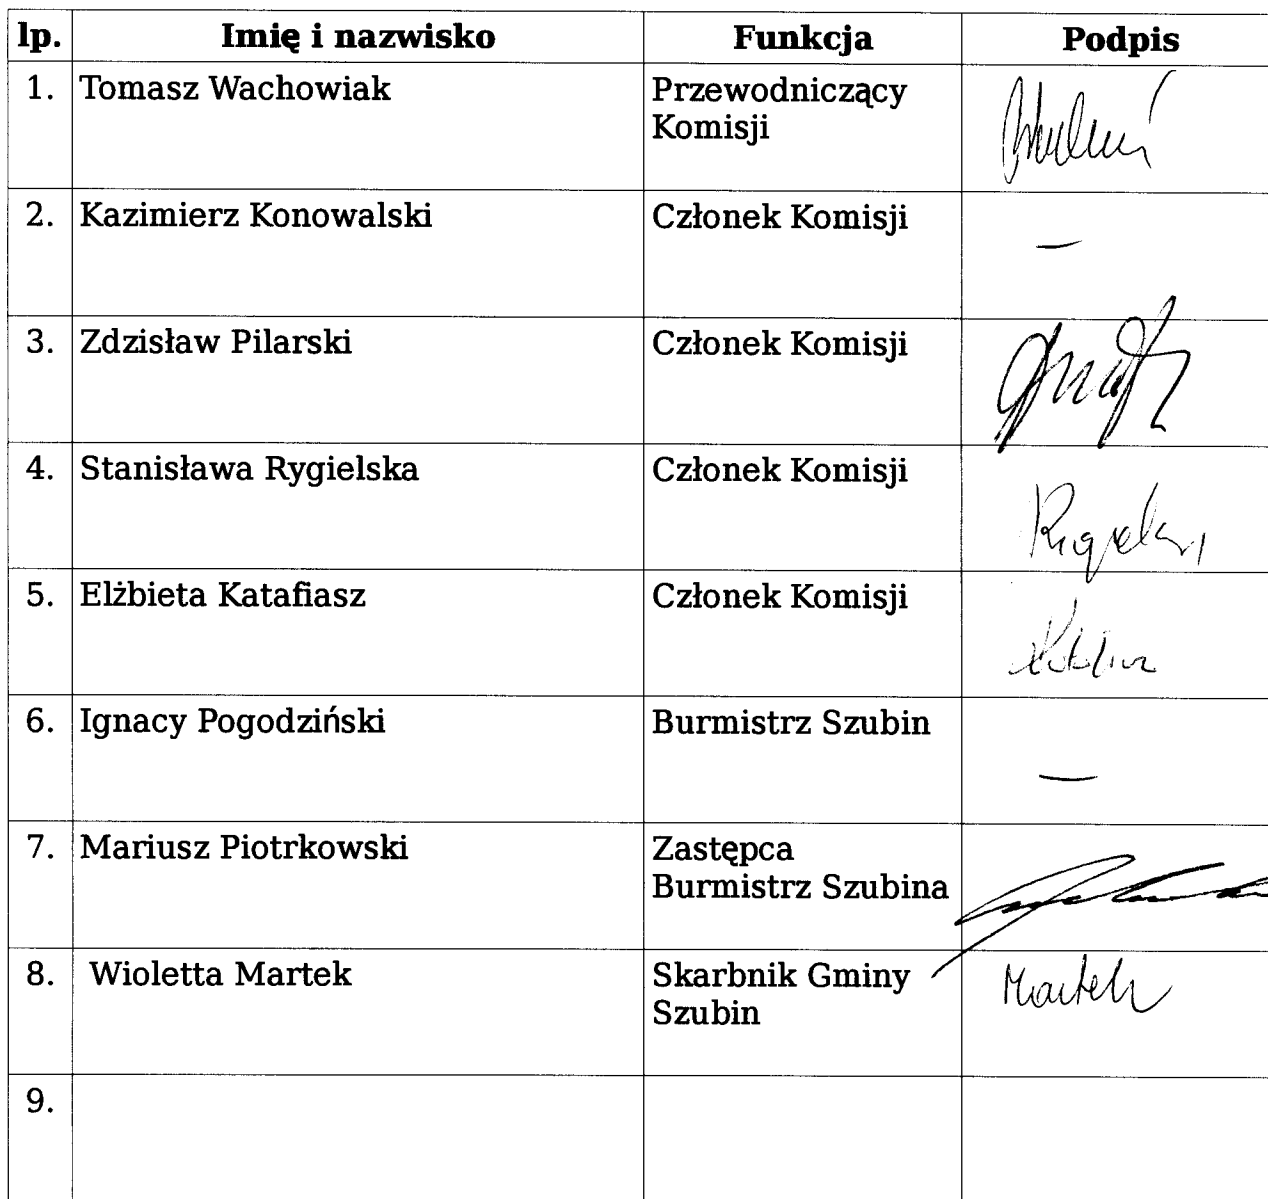 lp. Imię i nazwisko Funkcja Podpis
1. Tomasz Wachowiak Przewodniczący
Komisji
2. Kazimierz Konowalski Członek Komisji —
3. Zdzisław Pilarski Członek Komisji
4. Stanisława Rygielska Członek Komisji
5. Elżbieta Katafiasz Członek Komisji
6. Ignacy Pogodziński Burmistrz Szubin —
7. Mariusz Piotrkowski Zastępca
Burmistrz Szubina
8. Wioletta Martek Skarbnik Gminy Martek
Szubin
9.